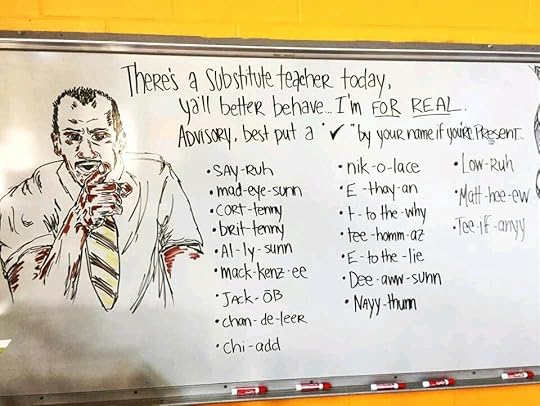 There's a substitute teacher today,
ya'll better behave... I'm FOR REAL.
ADVISORY, best put a "✓" by your name if you're Present...
• SAY-Ruh
• mad-eye-sunn
• CORT-tenny
• brit-tenny
• Al-ly-sunn
• mack-kenz-ee
• JACK-ŌB
• chan-de-leer
• Chi-add
• nik-o-lace
• E-thay-an
• t-to the-why
• tee-homm-az
• E-to the-lie
• Dee-aww-sunn
• NAYY-thunn
• Low-Ruh
• Matt-hee-ew
• Tee-iff-anyy